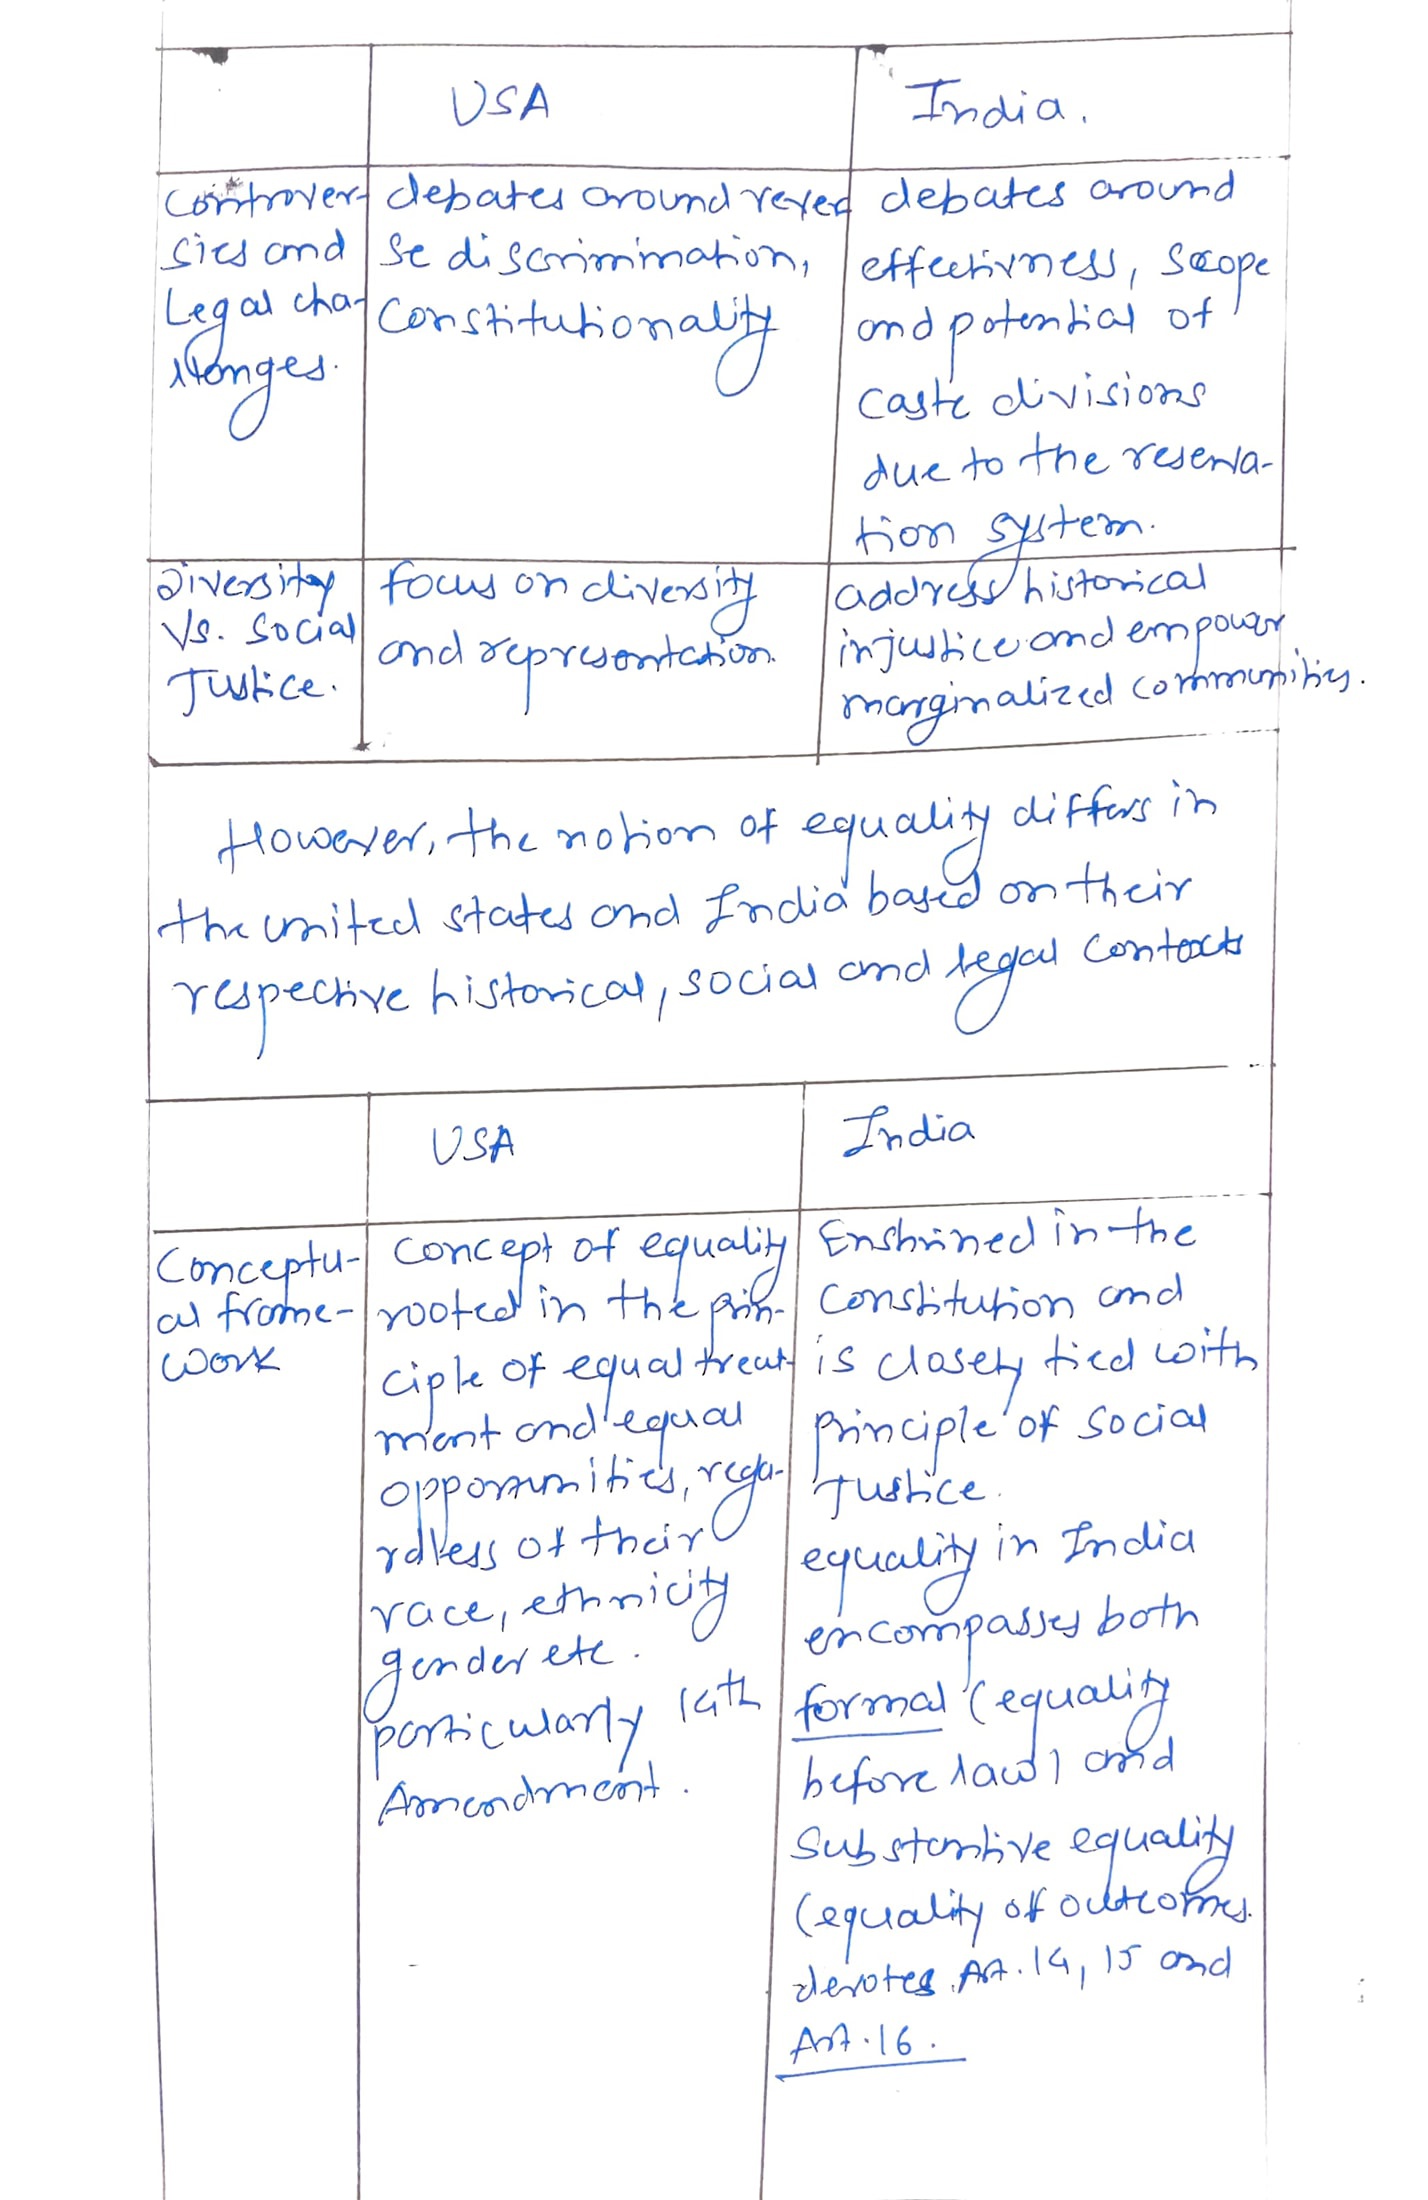 USA India.
Controver-
sies and
Legal cha-
llenges.
debates around rever
se discrimination,
Constitutionality
debates around
effectivness, scope
and potential of
caste divisions
due to the reserva-
tion system.
Diversity
Vs. Social
Justice.
focus on diversity
and representation.
address historical
injustice and empower
marginalized communities.
However, the notion of equality differs in
the united states and India based on their
respective historical, social and legal contexts
USA India
Conceptu-
al frame-
work
concept of equality
rooted in the prin-
ciple of equal treat-
ment and equal
opportunities, rega-
rdless of their
race, ethnicity
gender etc.
particularly 14th
Amendment.
Enshrined in the
Constitution and
is closely tied with
principle of social
Justice.
equality in India
encompasses both
formal (equality
before law) and
Substantive equality
(equality of outcomes.
devotes Art. 14, 15 and
Art. 16.